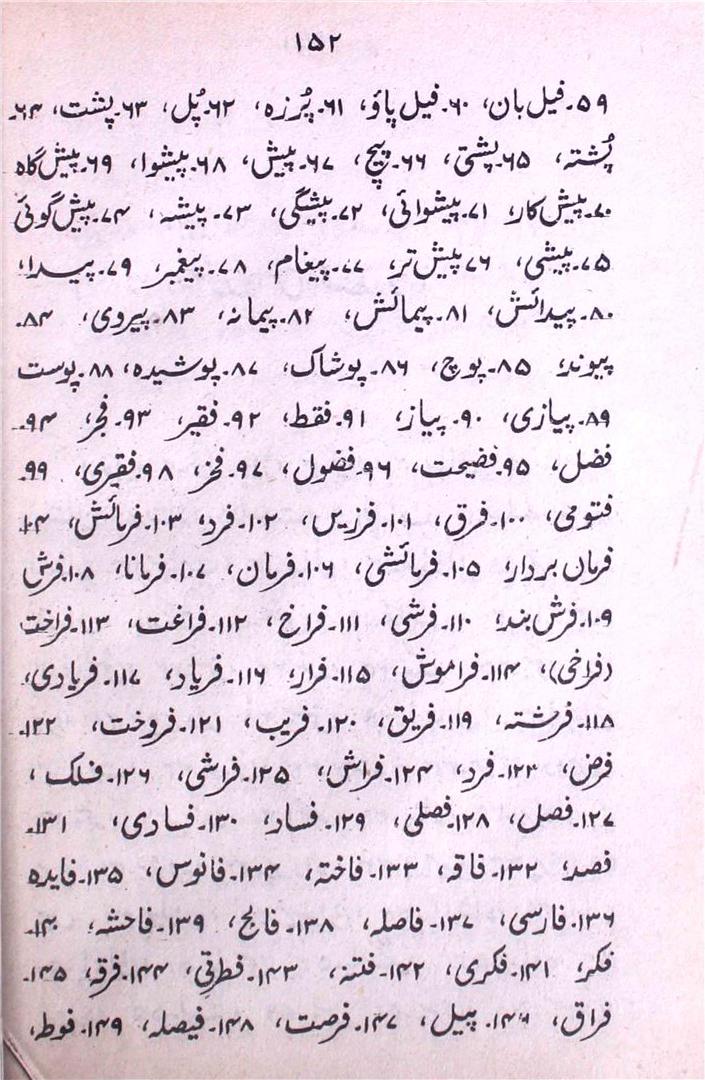 ۱۵۲
۵۹۔فیل بان، ۶۰۔فیل پاؤ، ۶۱۔پُرزہ، ۶۲۔پُل، ۶۳۔پشت، ۶۴۔
پُشتہ، ۶۵۔پشتی، ۶۶۔پیچ، ۶۷۔پیش، ۶۸۔پیشوا، ۶۹۔پیش گاہ
۷۰۔پیش کار، ۷۱۔پیشوائی، ۷۲۔پیشگی، ۷۳۔پیشہ، ۷۴۔پیش گوئی
۷۵۔پیشی، ۷۶۔پیش تر، ۷۷۔پیغام، ۷۸۔پیغمبر، ۷۹۔پیدا،
۸۰۔پیدائش، ۸۱۔پیمائش، ۸۲۔پیمانہ، ۸۳۔پیروی، ۸۴۔
پیوند، ۸۵۔پوچ، ۸۶۔پوشاک، ۸۷۔پوشیدہ، ۸۸۔پوست
۸۹۔پیازی، ۹۰۔پیاز، ۹۱۔فقط، ۹۲۔فقیر، ۹۳۔فجر، ۹۴۔
فضل، ۹۵۔فضیحت، ۹۶۔فضول، ۹۷۔فخر، ۹۸۔فقیری، ۹۹۔
فتومی، ۱۰۰۔فرق، ۱۰۱۔فرزیں، ۱۰۲۔فرد، ۱۰۳۔فرمائش، ۱۰۴
فرماں بردار، ۱۰۵۔فرمائشی، ۱۰۶۔فرمان، ۱۰۷۔فرمانا، ۱۰۸۔فرش
۱۰۹۔فرش بند، ۱۱۰۔فرشی، ۱۱۱۔فراخ، ۱۱۲۔فراغت، ۱۱۳۔فراخت
(فراخی)، ۱۱۴۔فراموش، ۱۱۵۔فرار، ۱۱۶۔فریاد، ۱۱۷۔فریادی،
۱۱۸۔فرشتہ، ۱۱۹۔فریق، ۱۲۰۔فریب، ۱۲۱۔فروخت، ۱۲۲۔
فرض، ۱۲۳۔فرد، ۱۲۴۔فراش، ۱۲۵۔فراشی، ۱۲۶۔فلک،
۱۲۷۔فصل، ۱۲۸۔فصلی، ۱۲۹۔فساد، ۱۳۰۔فسادی، ۱۳۱۔
فصد، ۱۳۲۔فاقہ، ۱۳۳۔فاختہ، ۱۳۴۔فانوس، ۱۳۵۔فایدہ
۱۳۶۔فارسی، ۱۳۷۔فاصلہ، ۱۳۸۔فالج، ۱۳۹۔فاحشہ، ۱۴۰۔
فکر، ۱۴۱۔فکری، ۱۴۲۔فتنہ، ۱۴۳۔فطرتِی، ۱۴۴۔فرقہ، ۱۴۵۔
فراق، ۱۴۶۔پیل، ۱۴۷۔فرصت، ۱۴۸۔فیصلہ، ۱۴۹۔فوطہ،